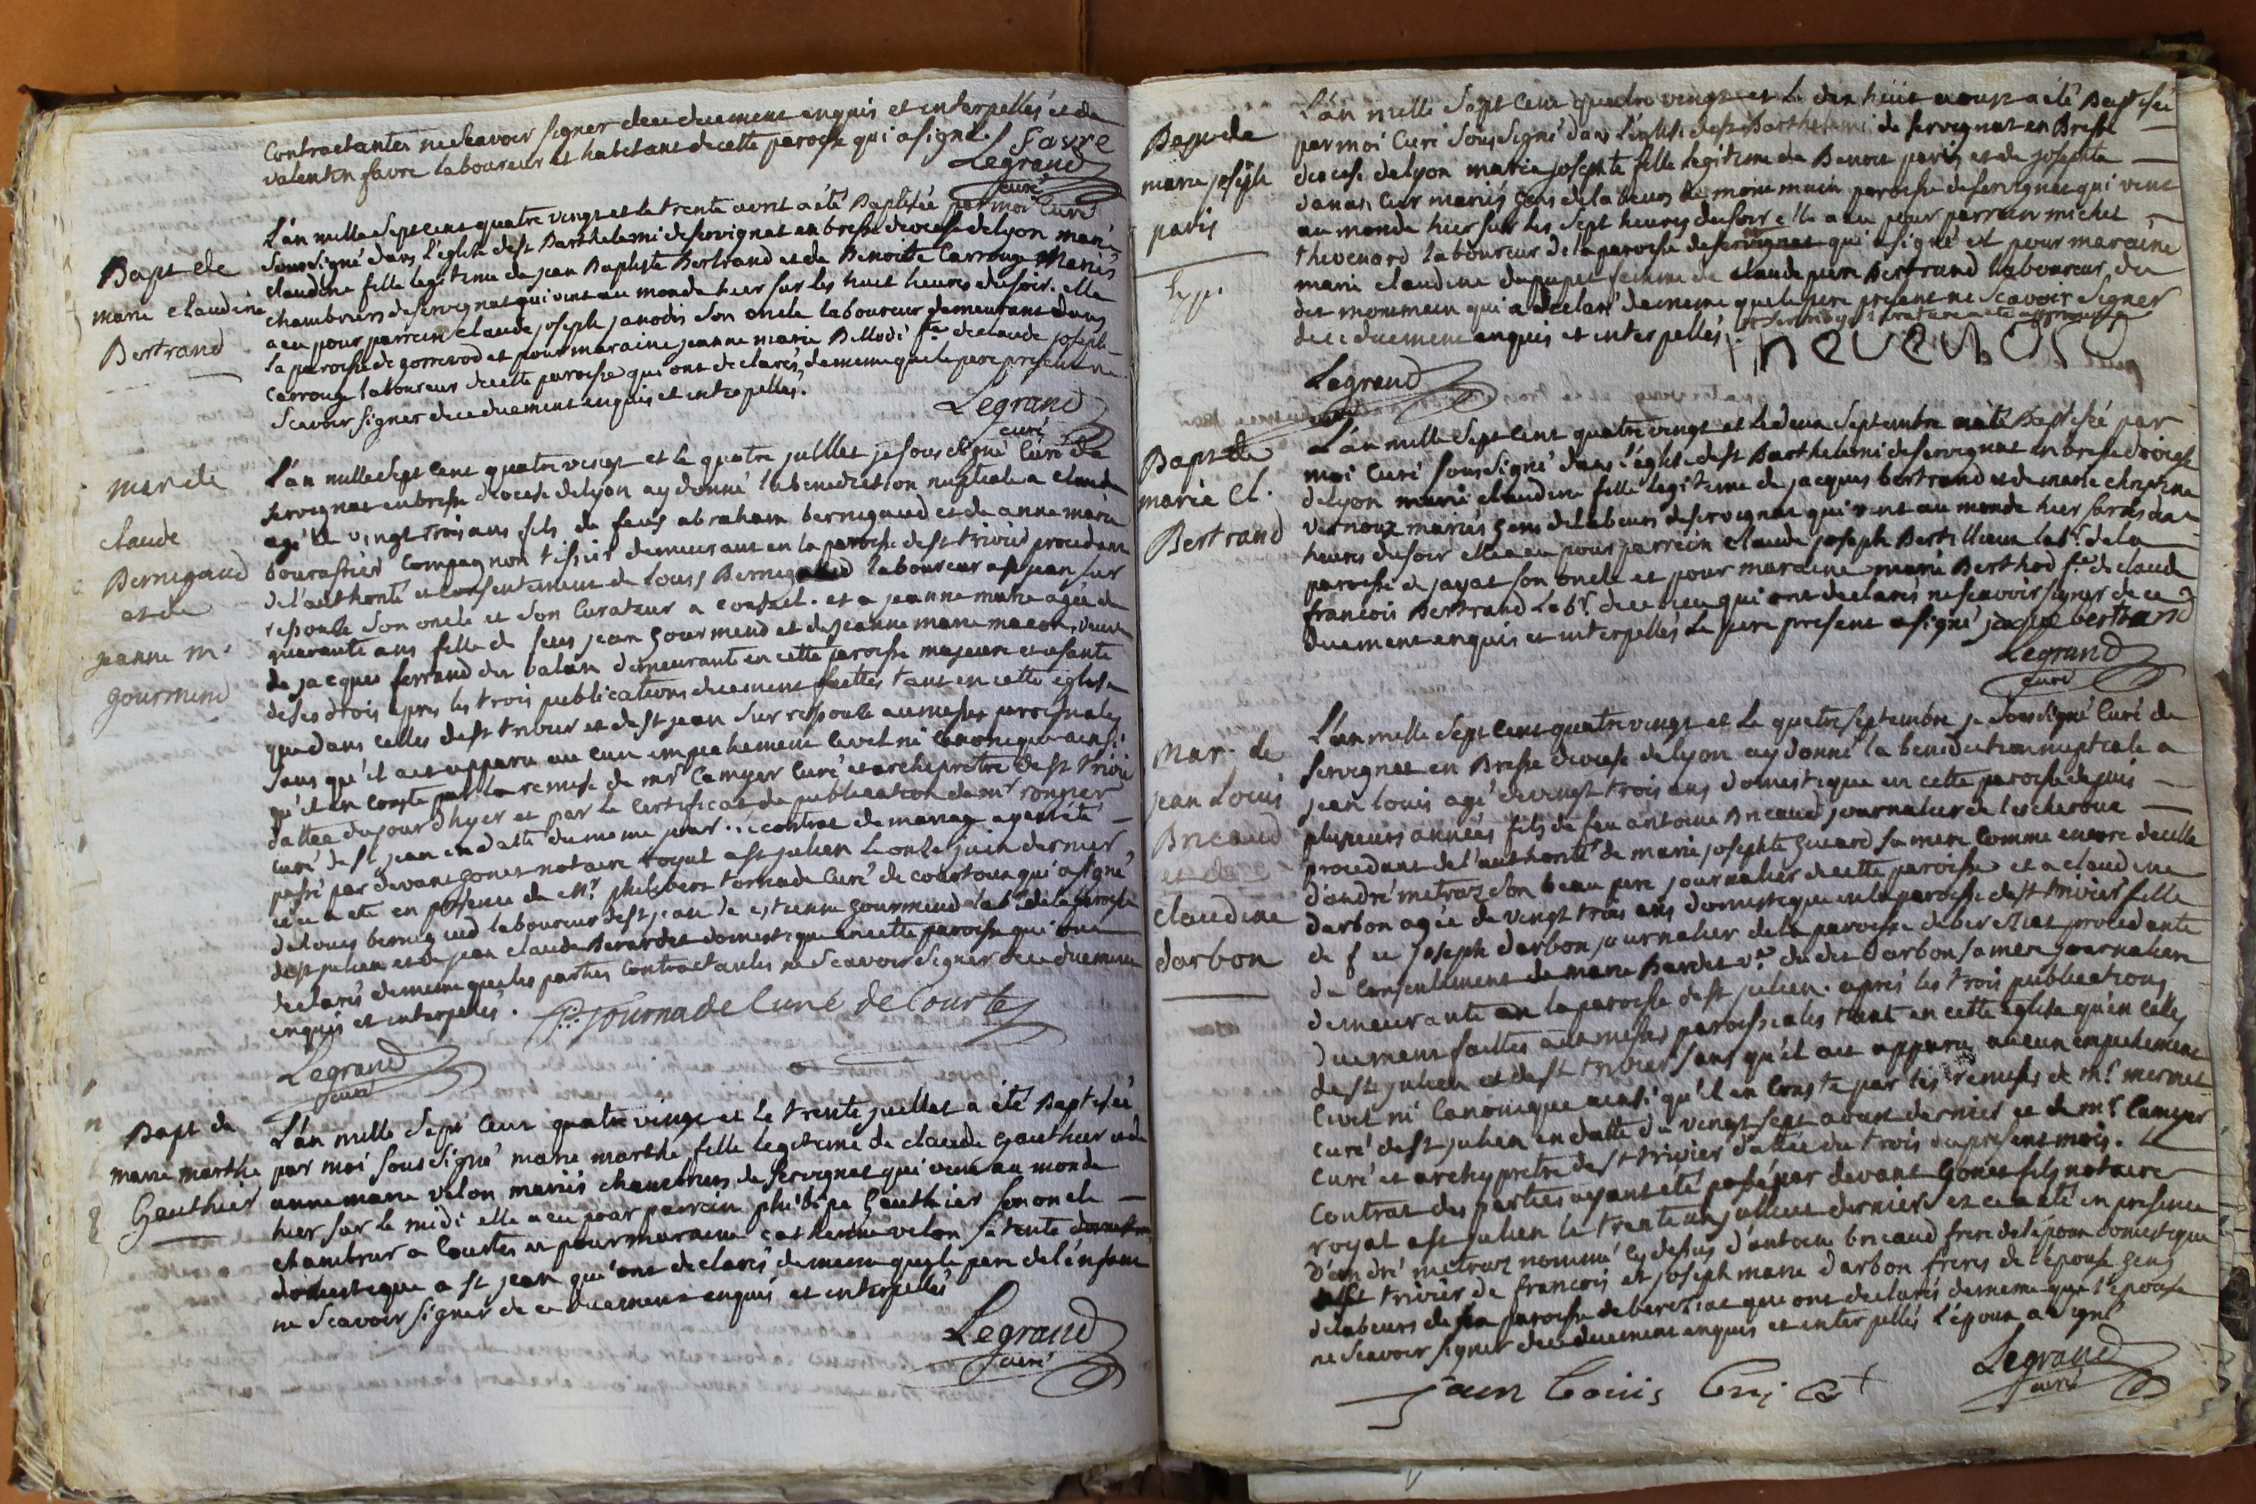 contractantes ne scavoir signer de ce duement enquis et interpellés et de
valentin favre laboureur et habitant de cette paroisse qui a signé. Favre
Legrand
curé
Bapt de
marie claudine
Bertrand
L'an mille sept cent quatre vingt et le trente avril a été Baptisée par moi Curé
soussigné dans l'eglise de st Barthelemi de servignat en bresse diocese de lyon marie
claudine fille legitime de jean Baptiste Bertrand et de Benoite Carrouge Mariés
chambriers de servignat qui vint au monde hier sur les huit heures du soir. elle
a eu pour parrein claude joseph janodis son oncle laboureur demeurant dans
la paroisse de gorrevod et pour maraine jeanne marie Bellod f.e de claude joseph
Carrouge laboureur de cette paroisse qui ont declarés de meme que le pere present ne
scavoir signer de ce duement enquis et interpellés.
Legrand
curé
mar de
claude
Bernigaud
et de
jeanne m.
gourmend
L'an mille sept cent quatre vingt et le quatre juillet je soussigné Curé de
servignat en bresse diocese de lyon ay donné la benediction nuptiale a claude
agé de vingt trois ans fils de feus abraham bernigaud et de anne marie
bourassier compagnon tissier demeurant en la paroisse de st trivier procedant
de l'authorité et consentement de Louis Bernigaud laboureur a st jean sur
ressouse son oncle et son curateur a conseil. et a jeanne marie agée de
quarante ans fille de feus jean gourmend et de jeanne marie macon, veuve
de jacques ferrand du valan demeurante en cette paroisse majeure et usante
de ses droits apres les trois publications duement faittes tant en cette eglise
que dans celles de st trivier et de st jean sur ressouse aux messes paroissiales
sans qu'il ait apparu au cun empechement civil ni canonique ainsi
qu'il en conste par la remise de mr Camyer curé et archipretre de st trivier
dattée du jour d'hyer et par le certificat de publication de mr ronger
curé de st jean en datte du meme jour. le contrat de mariage ayant été
passé par devant gonet notaire royal a st julien le onze juin dernier
ce a été en presence de mr. philibert tornade Curé de courtoux qui a signé
de louis bernigaud laboureur de st jean de estienne gourmend lab.r de la paroisse
de st julien et de jean claude Berardet domestique en cette paroisse qui ont
declarés de meme que les parties contractantes ne scavoir signer de ce duement
enquis et interpellés. P: journade Curé de Courtes
Legrand
curé
Bapt de
marie marthe
Gauthier
L'an mille sept cent quatre vingt et le trente juillet a été Baptisée
par moi soussigné marie marthe fille legitime de claude gauthier et de
anne marie velon mariés chambriers de servignat qui vint au monde
hier sur le midi elle a eu pour parrain philippe Gauthier son oncle
chambrier a Courtes et pour maraine catherine velon sa tante
domestique a st jean qui ont declarés de meme que le pere de l'enfant
ne scavoir signer de ce duement enquis et interpellés
Legrand
curé
Bapt de
marie joseph
paris
L'an mille sept cent quatre vingt et le dix huit aoust a été Baptisée
par moi Curé soussigné dans l'eglise de st Barthelemi de servignat en Bresse
diocese de lyon marie josephte fille legitime de Benoit paris et de josephte
danas leur mariés gens de labeurs de moin main paroisse de servignat qui vint
au monde hier sur les sept heures du soir elle a eu pour parrain michel
thevenard laboureur de la paroisse de servignat qui a signé et pour maraine
marie claudine dupupet femme de claude pere Bertrand laboureur du
dit montmein qui a declaré de meme que le pere present ne scavoir signer
de ce duement enquis et interpellés.
Legrand
curé
Bapt de
marie cl.
Bertrand
L'an mille sept cent quatre vingt et le deux septembre a été Baptisée par
moi Curé soussigné dans l'eglise de st Barthelemi de servignat en bresse diocese
de lyon marie claudine fille legitime de jacques bertrand et de marie christine
vernoux mariés gens de labeurs de servignat qui vint au monde hier sur les onze
heures du soir elle a eu pour parrein claude joseph Bertillieux lab.r de la
paroisse de jayat son oncle et pour maraine marie Berthod f.e de claude
francois Bertrand Lab.r de ce lieu qui ont declarés ne scavoir signer de ce
duement enquis et interpellés le pere present a signé jacque bertrand
Legrand
curé
Mar. de
jean Louis
Bricaud
et de
claudine
darbon
L'an mille sept cent quatre vingt et le quatre septembre je soussigné Curé de
servignat en Bresse diocese de lyon ay donné la benediction nuptiale a
jean louis agé de vingt trois ans domestique en cette paroisse depuis
plusieurs années fils de feu antoine Bricaud journalier de lescheroux
procedant de l'authorité de marie josephte guerard sa mere comme encore de celle
d'andré metraz son beau pere journalier de cette paroisse et a claudine
darbon agée de vingt trois ans domestique en la paroisse de st trivier fille
de feu joseph darbon journalier de la paroisse de bereziat procedante
du consentement de marie Bardet v.e du dit darbon sa mere journaliere
demeurante en la paroisse de st julien. après les trois publications
duement faittes aux messes paroissiales tant en cette eglise qu'en celles
de st julien et de st trivier sans qu'il ait apparu aucun empechement
civil ni canonique ainsi qu'il en conste par les remises de mr mermet
curé de st julien en datte du vingt sept aoust dernier et de mr Camyer
curé et archypretre de st trivier dattée du trois du present mois. Le
contrat des parties ayant eté passé par devant gonet fils notaire
royal a st julien le trente un juillet dernier et ce a eté en presence
d'andré metraz nommé cy dessus d'antoine bricaud frere de l'époux domestique
a st trivier de francois et joseph marie darbon freres de l'épouse gens
de labeurs de la paroisse de bereziat qui ont declarés de meme que l'épouse
ne scavoir signer de ce duement enquis et interpellés l'époux a signé
Legrand
curé